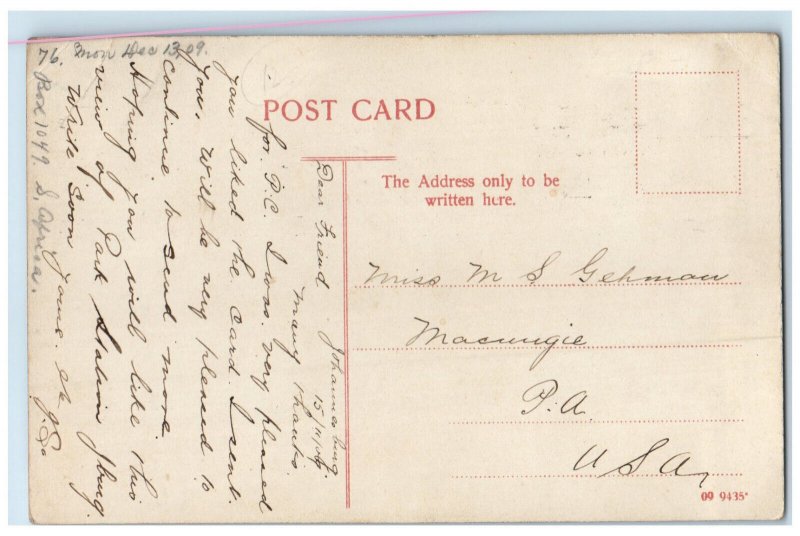 76. Mon Dec 13, 09.
Box 1049. S. Africa.
POST CARD
The Address only to be
written here.
Dear Friend Johannesburg
15/11/09.
Many thanks
for P.C. I was very pleased
you liked the card I sent
you. Will be very pleased to
continue to send more.
Hoping you will like this
view of Park Station Jburg.
Write soon
Miss M S Gehman
Macungie
P.A.
U S A,
09 9435*